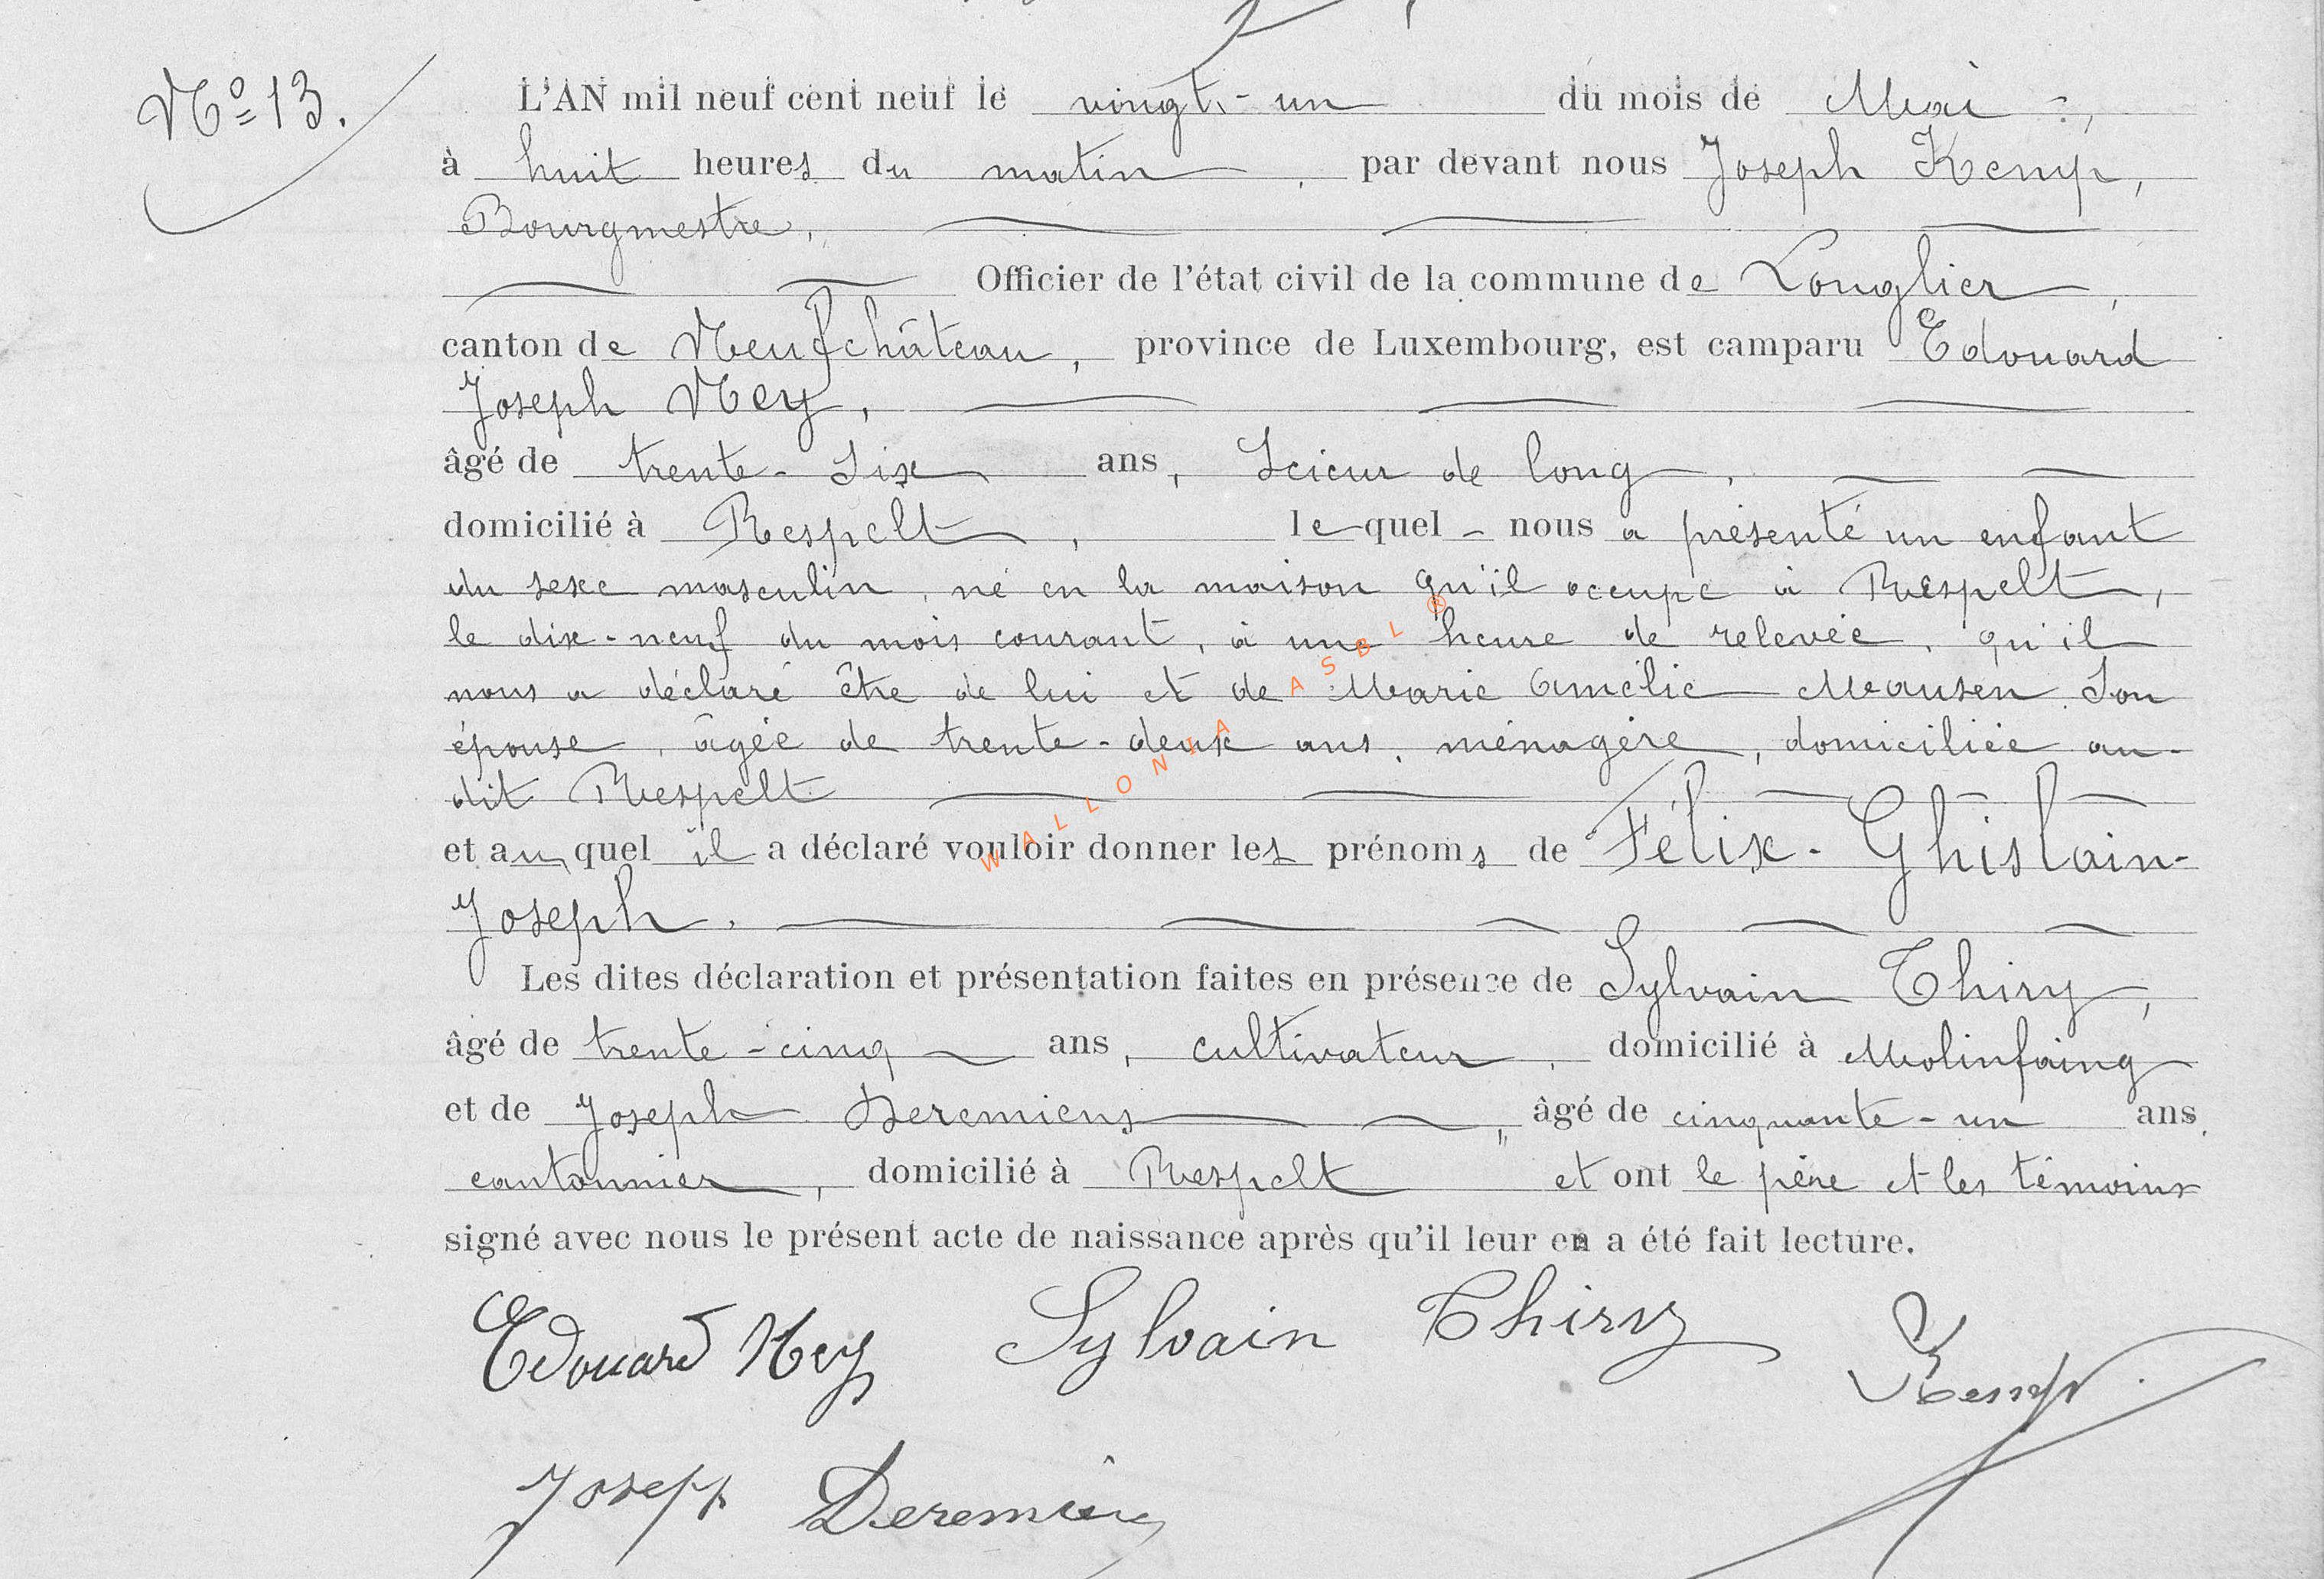 Nº 13.
L'AN mil neuf cent neuf le vingt-un du mois de Mai,
à huit heures du matin, par devant nous Joseph Kemp,
Bourgmestre,
Officier de l'état civil de la commune de Longlier,
canton de Neufchâteau, province de Luxembourg, est camparu Edouard
Joseph Ney,
âgé de trente-six ans, Scieur de long,
domicilié à Respelt, lequel nous a présenté un enfant
du sexe masculin, né en la maison qu'il occupe à Respelt,
le dix-neuf du mois courant, à une heure de relevée, qu'il
nous a déclaré être de lui et de Marie Amélie Mausen son
épouse, âgée de trente-deux ans, ménagère, domiciliée au-
dit Respelt
et auquel il a déclaré vouloir donner les prénoms de Félix-Ghislain-
Joseph.
Les dites déclaration et présentation faites en présence de Sylvain Thiry,
âgé de trente-cinq ans, cultivateur, domicilié à Molinfaing
et de Joseph Deremiens, âgé de cinquante-un ans,
cantonnier, domicilié à Respelt et ont le père et les témoins
signé avec nous le présent acte de naissance après qu'il leur en a été fait lecture.
Edouard Ney Sylvain Thiry Kemp
Joseph Deremiens
WALLONIA ASBL ®